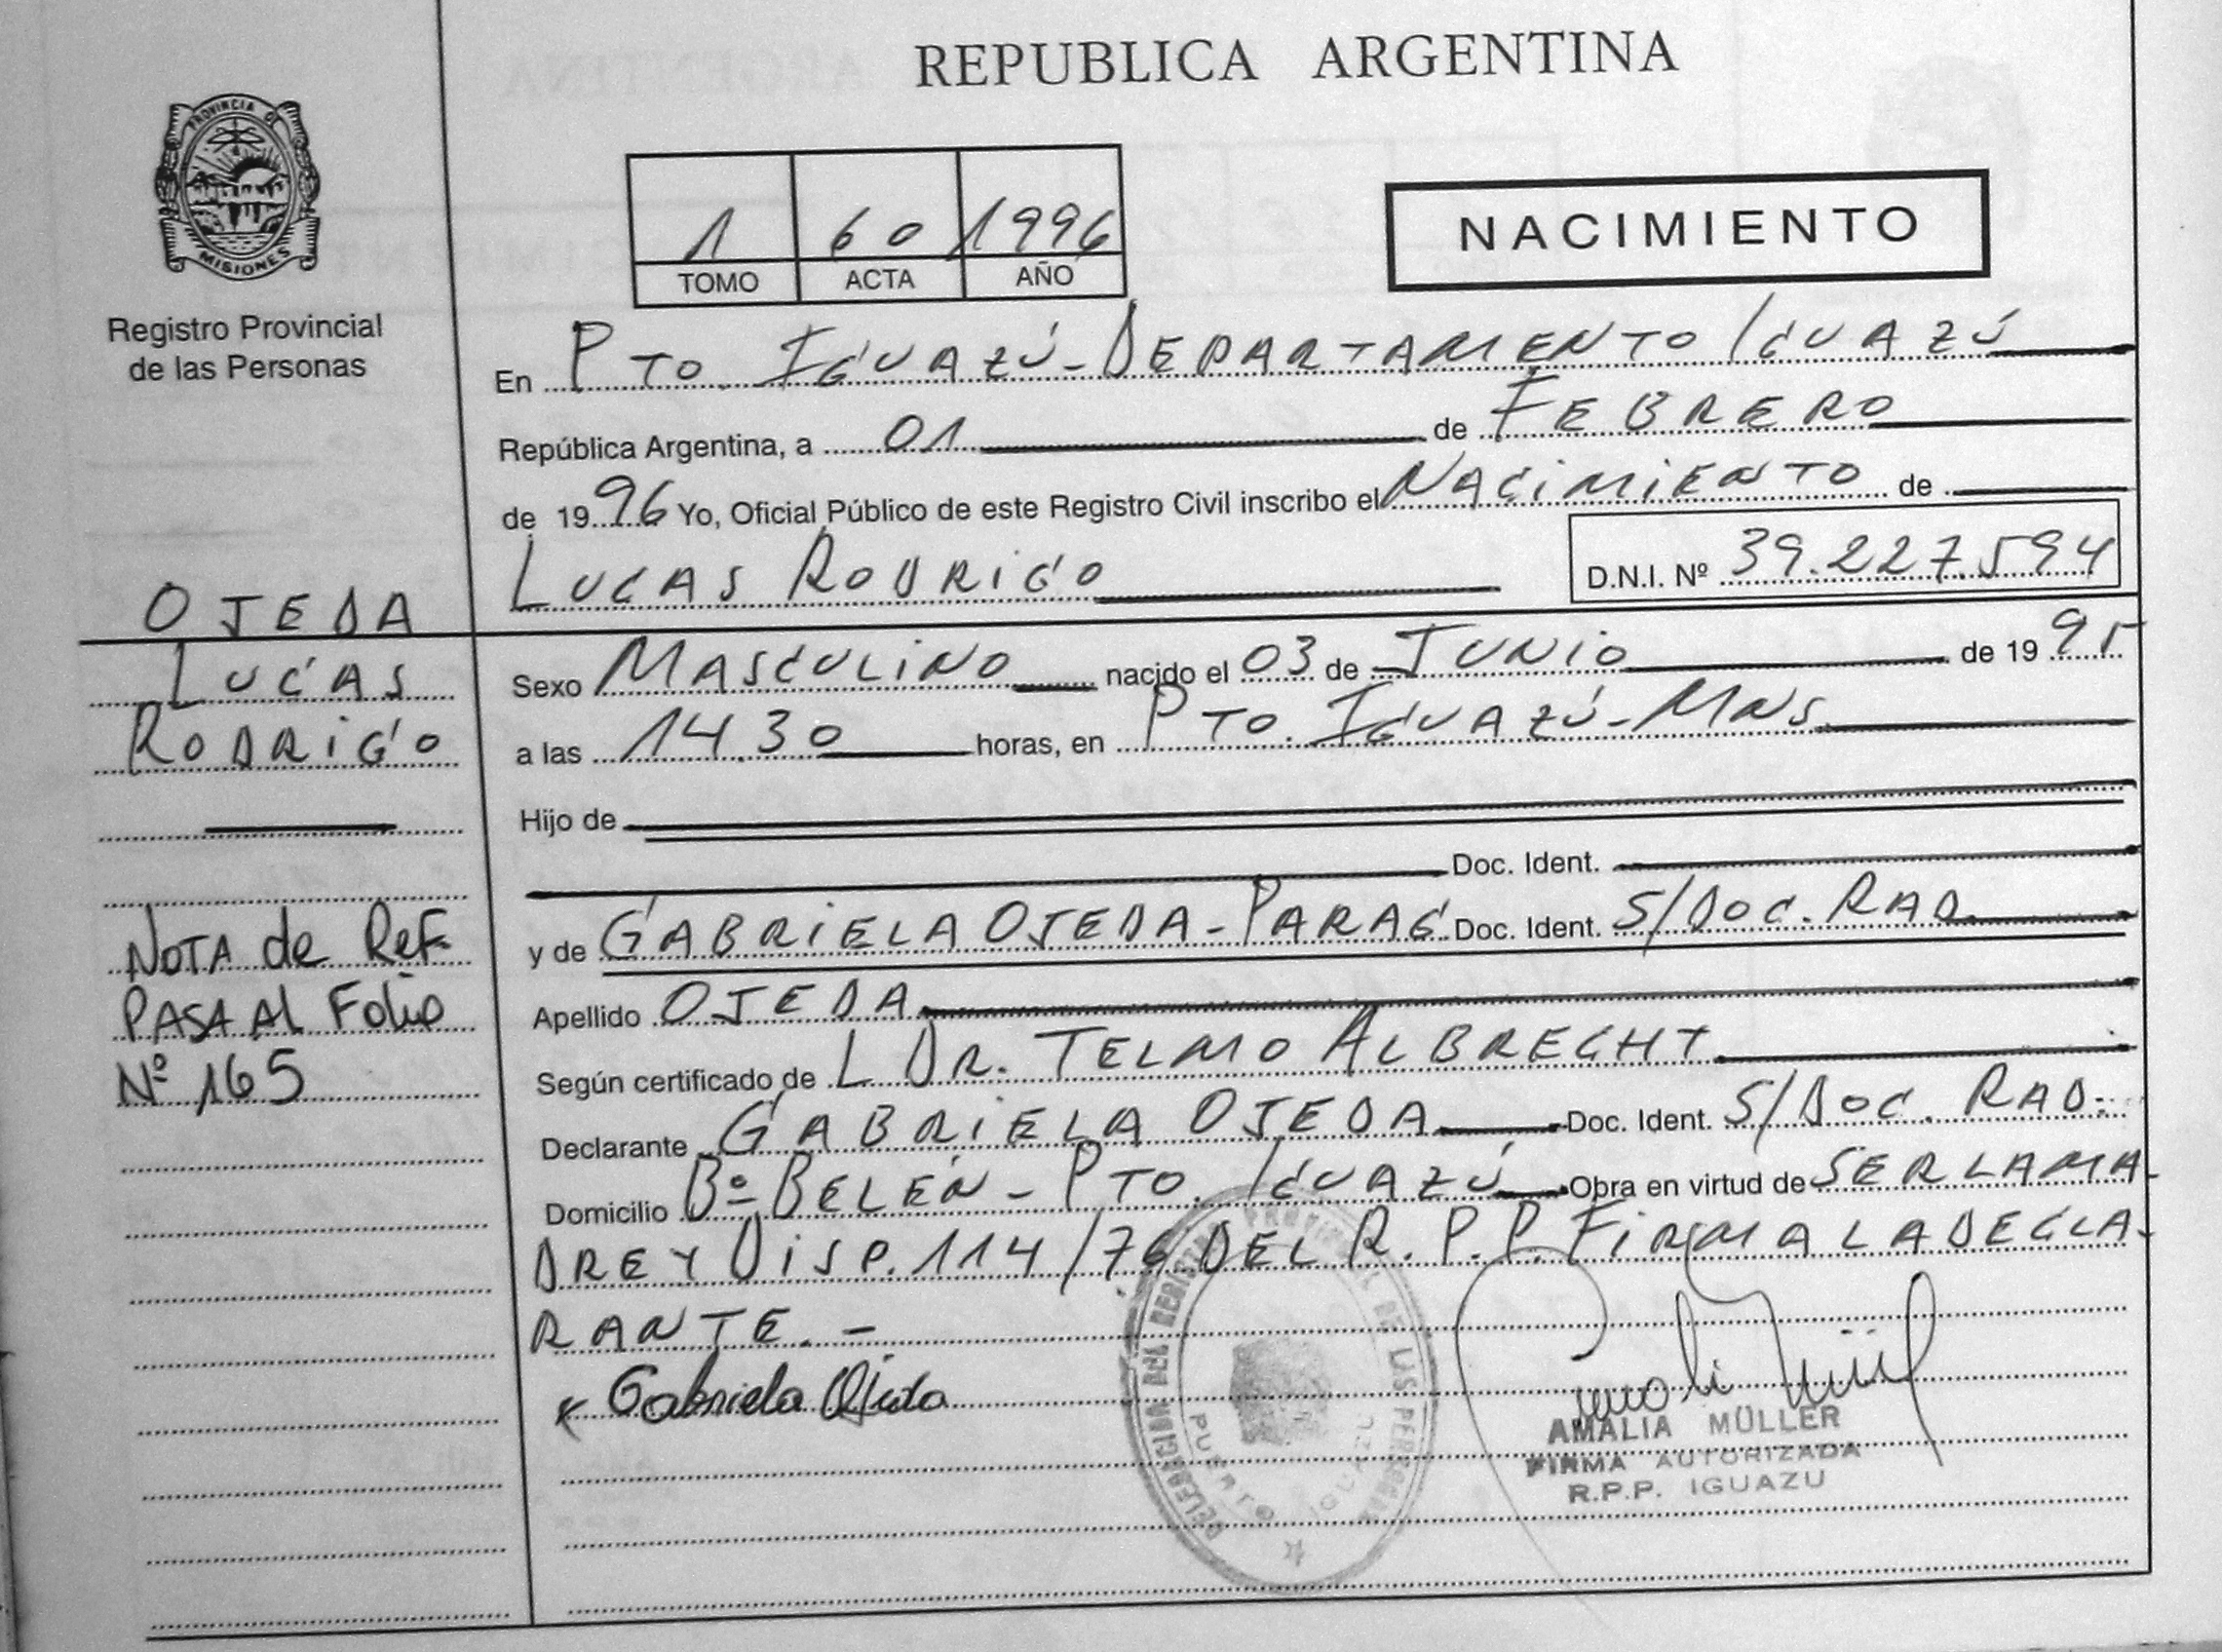 REPUBLICA ARGENTINA
PROVINCIA DE
MISIONES
Registro Provincial
de las Personas
1 60 1996
TOMO ACTA AÑO
NACIMIENTO
En PTO. IGUAZÚ - DEPARTAMENTO IGUAZÚ
República Argentina, a 01 de FEBRERO
de 1996 Yo, Oficial Público de este Registro Civil inscribo el NACIMIENTO de
LUCAS RODRIGO D.N.I. Nº 39.227.594
OJEDA
LUCAS
RODRIGO
NOTA de Ref.
PASA AL Folio
Nº 165
Sexo MASCULINO nacido el 03 de JUNIO de 1995
a las 14.30 horas, en PTO. IGUAZÚ - MNS.
Hijo de
Doc. Ident.
y de GABRIELA OJEDA - PARAG. Doc. Ident. S/DOC. RAD.
Apellido OJEDA
Según certificado de L DR. TELMO ALBRECHT
Declarante GABRIELA OJEDA Doc. Ident. S/DOC. RAD.
Domicilio Bº BELÉN - PTO. IGUAZÚ Obra en virtud de SER LA MA-
DRE Y DISP. 114/76 DEL R.P.P. FIRMA LA DECLA-
RANTE. -
Gabriela Ojeda
DELEGACION DEL REGISTRO PROVINCIAL DE LAS PERSONAS
PUERTO IGUAZU
AMALIA MÜLLER
FIRMA AUTORIZADA
R.P.P. IGUAZU